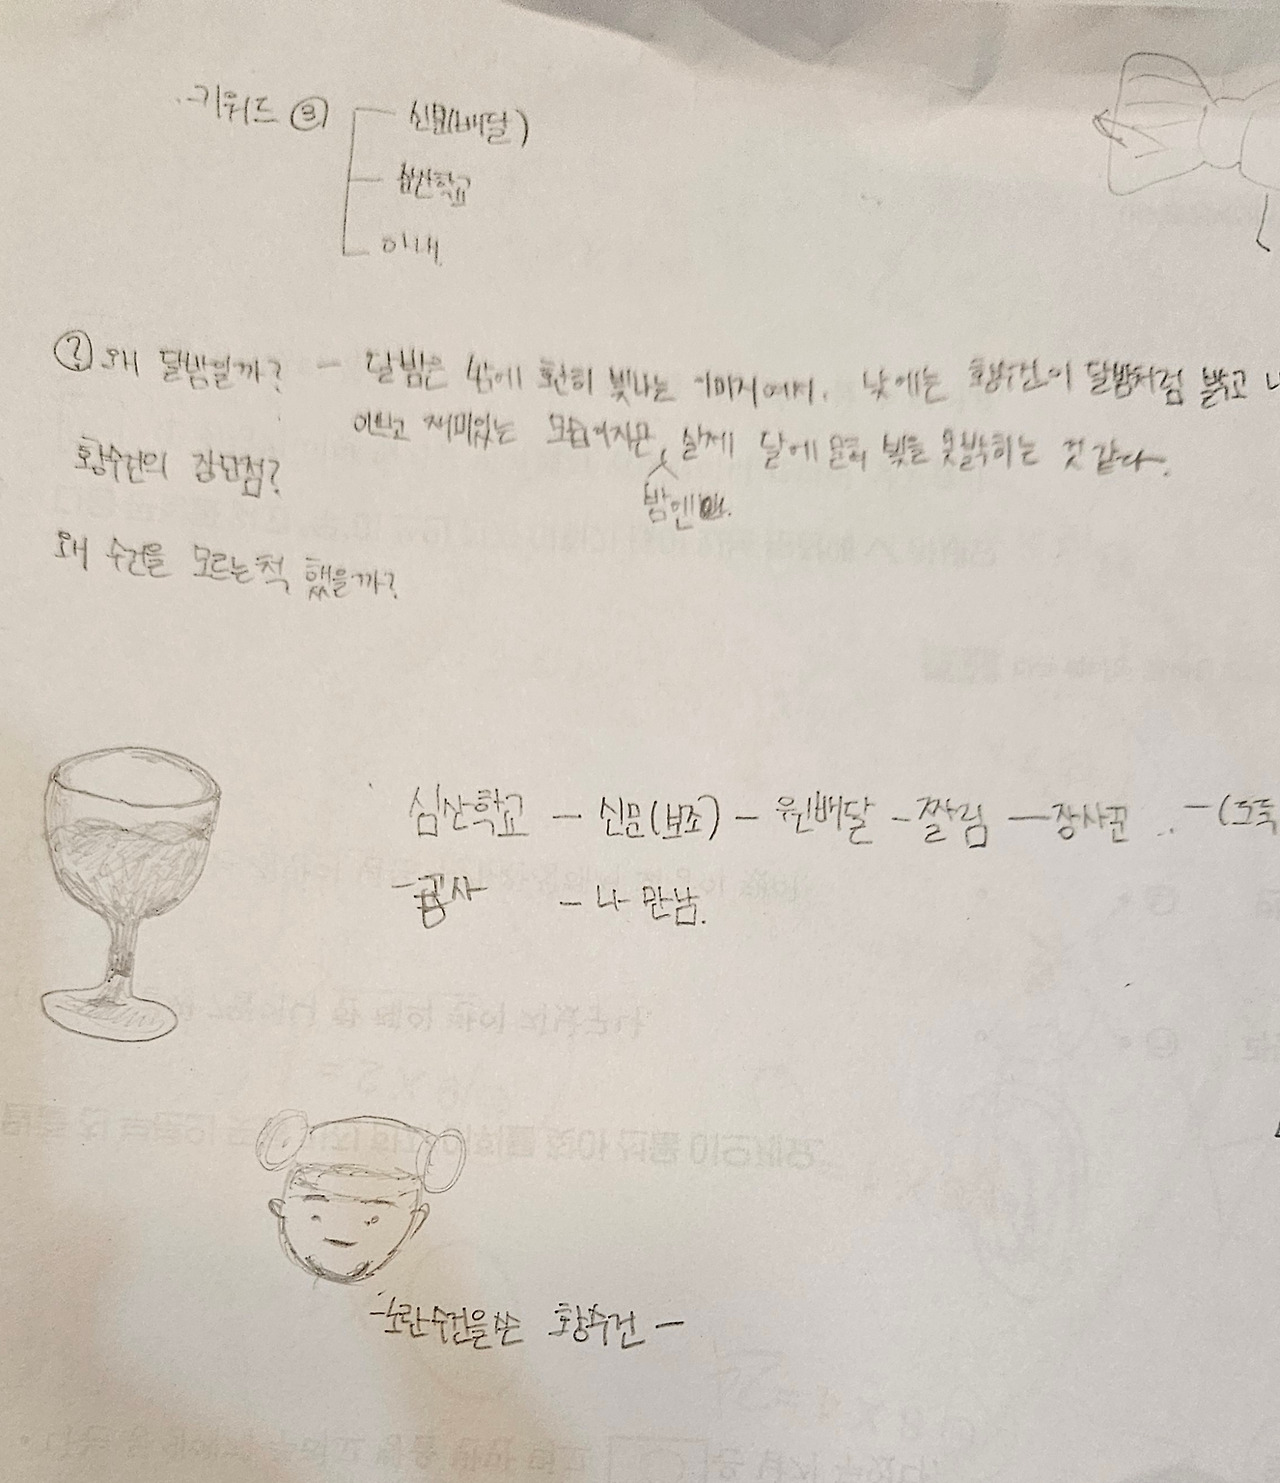 키워드 ③
신문(배달)
삼산학교
아내
? 왜 달밤일까? - 달밤은 밤에 환히 빛나는 이미지여서. 낮에는 황수건이 달밤처럼 밝고
재미있는 모습이지만, 실제 달에 빛을 못박히는 것 같다.
밤엔
황수건의 장단점?
왜 수건을 모르는척 했을까?
심산학교 - 신문(보조) - 원배달 - 짤림 - 장사꾼 - (도둑
- 나 만남.
-노란수건을쓴 황수건 -